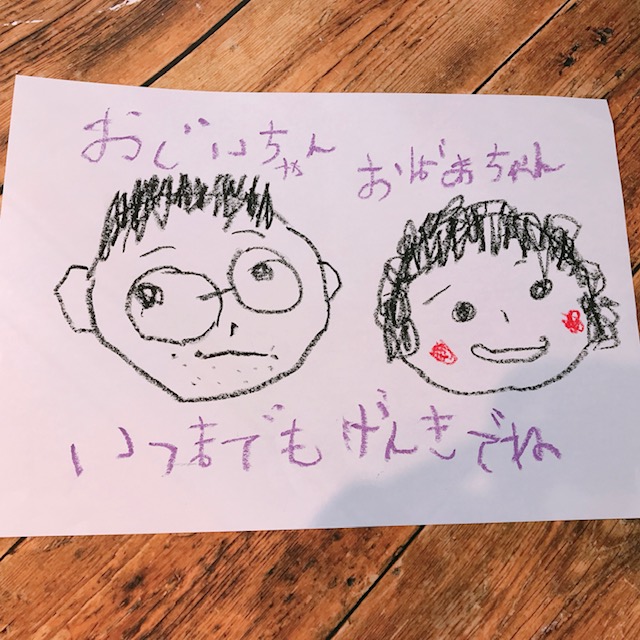 おじいちゃん
おばあちゃん
いつまでもげんきでね